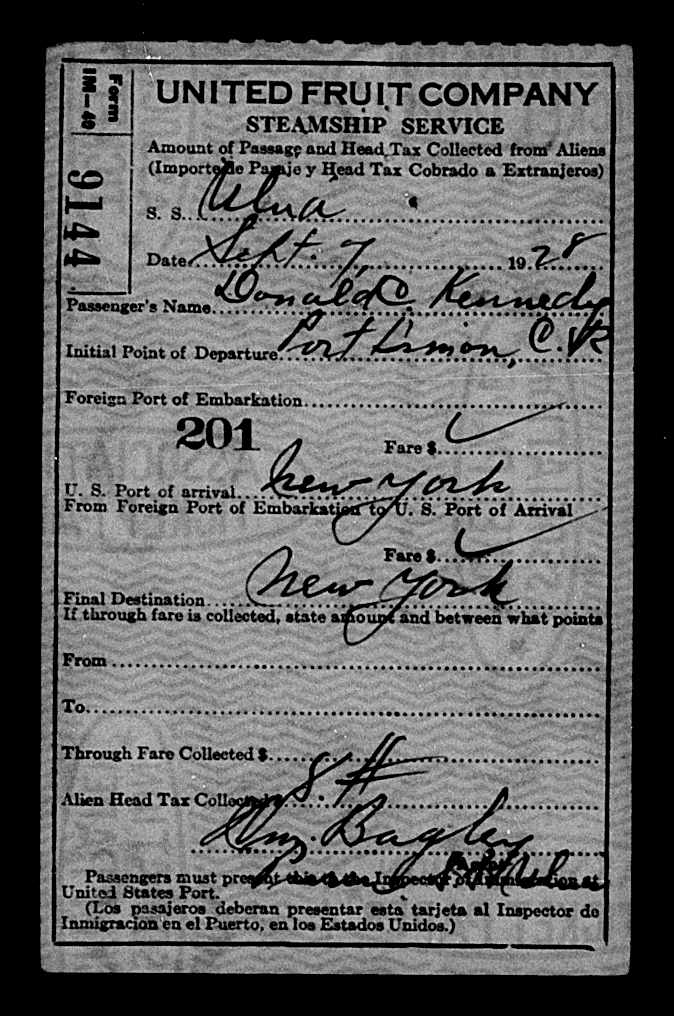 Form
IM-40
9144
UNITED FRUIT COMPANY
STEAMSHIP SERVICE
Amount of Passage and Head Tax Collected from Aliens
(Importe de Pasaje y Head Tax Cobrado a Extranjeros)
S. S. Ulua
Date Sept. 7, 1928
Passenger's Name Donald C. Kennedy
Initial Point of Departure Port Limon, C. R
Foreign Port of Embarkation
201
Fare $ ✓
U. S. Port of arrival New York
From Foreign Port of Embarkation to U. S. Port of Arrival
Fare $ ✓
Final Destination New York
If through fare is collected, state amount and between what points
From
To
Through Fare Collected $
Alien Head Tax Collected $ 8
Wm. Bagley
Passengers must present this to the Inspector of Immigration at
United States Port.
(Los pasajeros deberan presentar esta tarjeta al Inspector de
Inmigracion en el Puerto, en los Estados Unidos.)